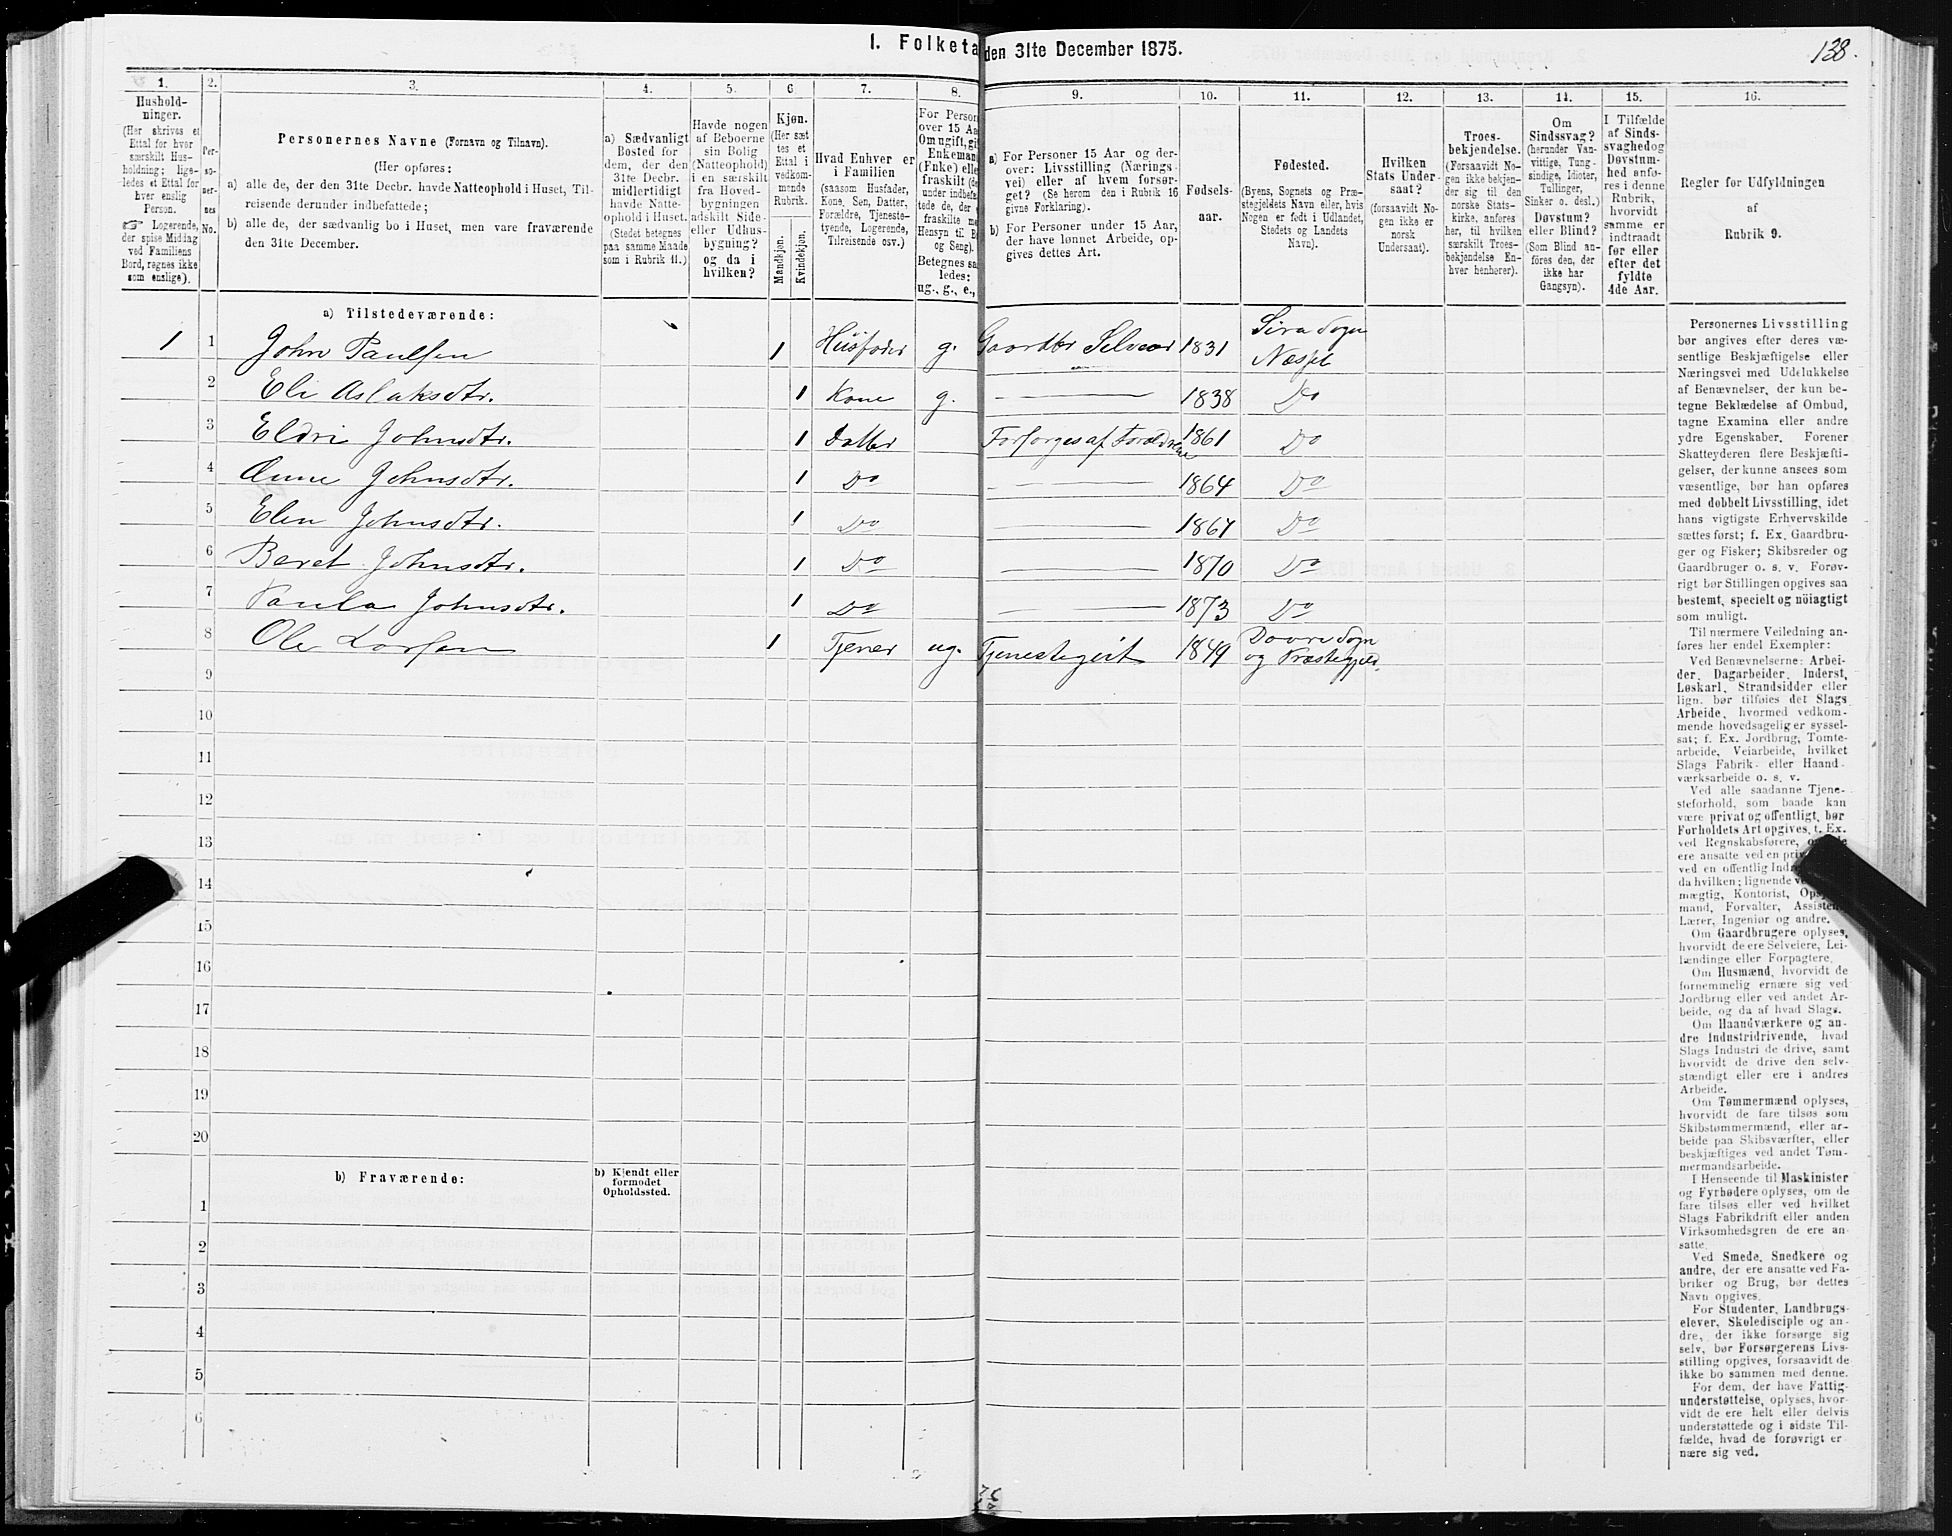 I. Folketa den 31te December 1875.
138.
1. 2. 3. 4. 5. 6. 7. 8. 9. 10. 11. 12. 13. 14. 15. 16.
Hushold-
ninger.
(Her skrives et
Ettal for hver
særskilt Hus-
holdning; lige-
ledes et Ettal for
hver enslig
Person.
☞ Logerende,
der spise Middag
ved Familiens
Bord, regnes ikke
som enslige).
Per-
so-
ner-
nes
No.
Personernes Navne (Fornavn og Tilnavn).
(Her opføres:
a) alle de, der den 31te Decbr. havde Natteophold i Huset, Til-
reisende derunder indbefattede;
b) alle de, der sædvanlig bo i Huset, men vare fraværende
den 31te December.
a) Sædvanligt
Bosted for
dem, der den
31te Decbr.
midlertidigt
havde Natte-
ophold i Huset.
(Stedet betegnes
paa samme Maade
som i Rubrik 11.)
Havde nogen
af Beboerne
sin Bolig
(Natteophold)
i en særskilt
fra Hoved-
bygningen
adskilt Side-
eller Udhus-
bygning?
og da i
hvilken?
Kjøn.
(Her sæt
tes et
Ettal i
vedkom-
mende
Rubrik.
Mandkjøn.
Kvindekjøn.
Hvad Enhver er
i Familien
(saasom Husfader,
Kone, Søn, Datter,
Forældre, Tjeneste-
tyende, Logerende,
Tilreisende osv.)
For Person
over 15 Aa
Om ugift, gif
Enkeman
(Enke) elle
fraskilt (de
under indbefat
tede de, der e
fraskilte me
Hensyn til B
og Seng).
Betegnes saa
ledes:
ug., g., e.,
a) For Personer 15 Aar og der-
over: Livsstilling (Nærings-
vei) eller af hvem forsør-
get? (Se herom den i Rubrik 16
givne Forklaring).
b) For Personer under 15 Aar,
der have lønnet Arbeide, op-
gives dettes Art.
Fødsels-
aar.
Fødested.
(Byens, Sognets og Præ-
stegjeldets Navn eller, hvis
Nogen er født i Udlandet,
Stedets og Landets
Navn).
Hvilken
Stats Under-
saat?
(forsaavidt No-
gen ikke er
norsk
Undersaat).
Troes-
bekjendelse.
(Forsaavidt No-
gen ikke bekjen-
der sig til den
norske Stats-
kirke, anføres
her, til hvilken
særskilt Troes-
bekjendelse En-
hver henhører).
Om
Sindssvag?
(herunder Van-
vittige, Tung-
sindige, Idioter,
Tullinger,
Sinker o. desl.)
Døvstum?
eller Blind?
(Som Blind an-
føres den, der
ikke har
Gangsyn).
I Tilfælde
af Sinds-
svaghed og
Døvstum-
hed anfø-
res i denne
Rubrik,
hvorvidt
samme er
indtraadt
før eller
efter det
fyldte
4de Aar.
Regler for Udfyldningen
af
Rubrik 9.
a) Tilstedeværende:
1 1 John Paulsen 1 Husfader g. Gaardbr Selveier 1831 Sira Sogn
Næsset
2 Eli Aslaksdtr. 1 Kone g. — 1838 Do
3 Eldri Johnsdtr. 1 Datter Forsørges af Forældrene 1861 Do
4 Anne Johnsdtr. 1 Do — 1864 Do
5 Elen Johnsdtr. 1 Do — 1867 Do
6 Beret Johnsdtr. 1 Do — 1870 Do
7 Paula Johnsdtr. 1 Do — 1873 Do
8 Ole Larsen 1 Tjener ug. Tjenestegut 1849 Dovre Sogn
og Præstegjeld.
9
10
11
12
13
14
15
16
17
18
19
20
b) Fraværende:
b) Kjendt eller
formodet
Opholdssted.
1
2
3
4
5
6
Personernes Livsstilling
bør angives efter deres væ-
sentlige Beskjæftigelse eller
Næringsvei med Udelukkelse
af Benævnelser, der kun be-
tegne Beklædelse af Ombud,
tagne Examina eller andre
ydre Egenskaber. Forener
Skatteyderen flere Beskjæfti-
gelser, der kunne ansees som
væsentlige, bør han opføres
med dobbelt Livsstilling, idet
hans vigtigste Erhvervskilde
sættes først; f. Ex. Gaardbru-
ger og Fisker; Skibsreder og
Gaardbruger o. s. v. Forøv-
rigt bør Stillingen opgives saa
bestemt, specielt og nöiagtigt
som muligt.
Til nærmere Veiledning an-
føres her endel Exempler:
Ved Benævnelserne: Arbei-
der, Dagarbeider, Inderst,
Løskarl, Strandsidder eller
lign. bør tilføies det Slags
Arbeide, hvormed vedkom-
mende hovedsagelig er syssel-
sat; f. Ex. Jordbrug, Tomte-
arbeide, Veiarbeide, hvilket
Slags Fabrik- eller Haand-
værksarbeide o. s. v.
Ved alle saadanne Tjene-
steforhold, som baade kan
være privat og offentligt, bør
Forholdets Art opgives, t. Ex.
ved Regnskabsførere,
ere ansatte ved en
ved en offentlig
da hvilken; lignende
mægtig, Kontorist,
mand, Forvalter,
Lærer, Ingeniør og andre.
Om Gaardbrugere oplyses,
hvorvidt de ere Selveiere, Lei-
lændinge eller Forpagtere.
Om Husmænd, hvorvidt de
fornemmelig ernære sig ved
Jordbrug eller ved andet Ar-
beide, og da af hvad Slags.
Om Haandværkere og an-
dre Industridrivende, hvad
Slags Industri de drive, samt
hvorvidt de drive den selv-
stændigt eller ere i andres
Arbeide.
Om Tømmermænd oplyses,
hvorvidt de fare tilsøs som
Skibstømmermænd, eller ar-
beide paa Skibsværfter, eller
beskjæftiges ved andet Tøm-
mermandsarbeide.
I Henseende til Maskinister
og Fyrbødere oplyses, om de
fare tilsøs eller ved hvilket
Slags Fabrikdrift eller anden
Virksomhedsgren de ere an-
satte.
Ved Smede, Snedkere og
andre, der ere ansatte ved Fa-
briker og Brug, bør dettes
Navn opgives.
For Studenter, Landbrugs-
elever, Skoledisciple og an-
dre, der ikke forsørge sig
selv, bør Forsørgerens Livs-
stilling opgives, forsaavidt de
ikke bo sammen med denne.
For dem, der have Fattig-
understøttelse, oplyses, hvor-
vidt de ere helt eller delvis
understøttede og i sidste Til-
fælde, hvad de forøvrigt er-
nære sig ved.